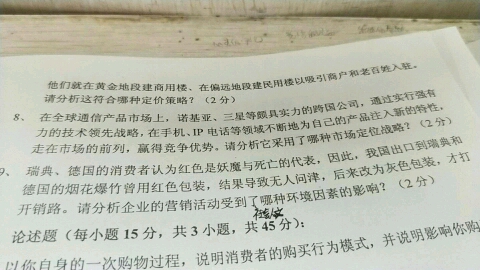 他们就在黄金地段建商用楼、在偏远地段建民用楼以吸引商户和老百姓入驻。
请分析这符合哪种定价策略？（2分）
8、在全球通信产品市场上，诺基亚、三星等颇具实力的跨国公司，通过实行强有
力的技术领先战略，在手机、IP电话等领域不断地为自己的产品注入新的特性，
走在市场的前列，赢得竞争优势。请分析它采用了哪种市场定位战略？（2分）
9、瑞典、德国的消费者认为红色是妖魔与死亡的代表，因此，我国出口到瑞典和
德国的烟花爆竹曾用红色包装，结果导致无人问津，后来改为灰色包装，才打
开销路。请分析企业的营销活动受到了哪种环境因素的影响？（2分）
论述题（每小题15分，共3小题，共45分）：
以你自身的一次购物过程，说明消费者的购买行为模式，并说明影响你购